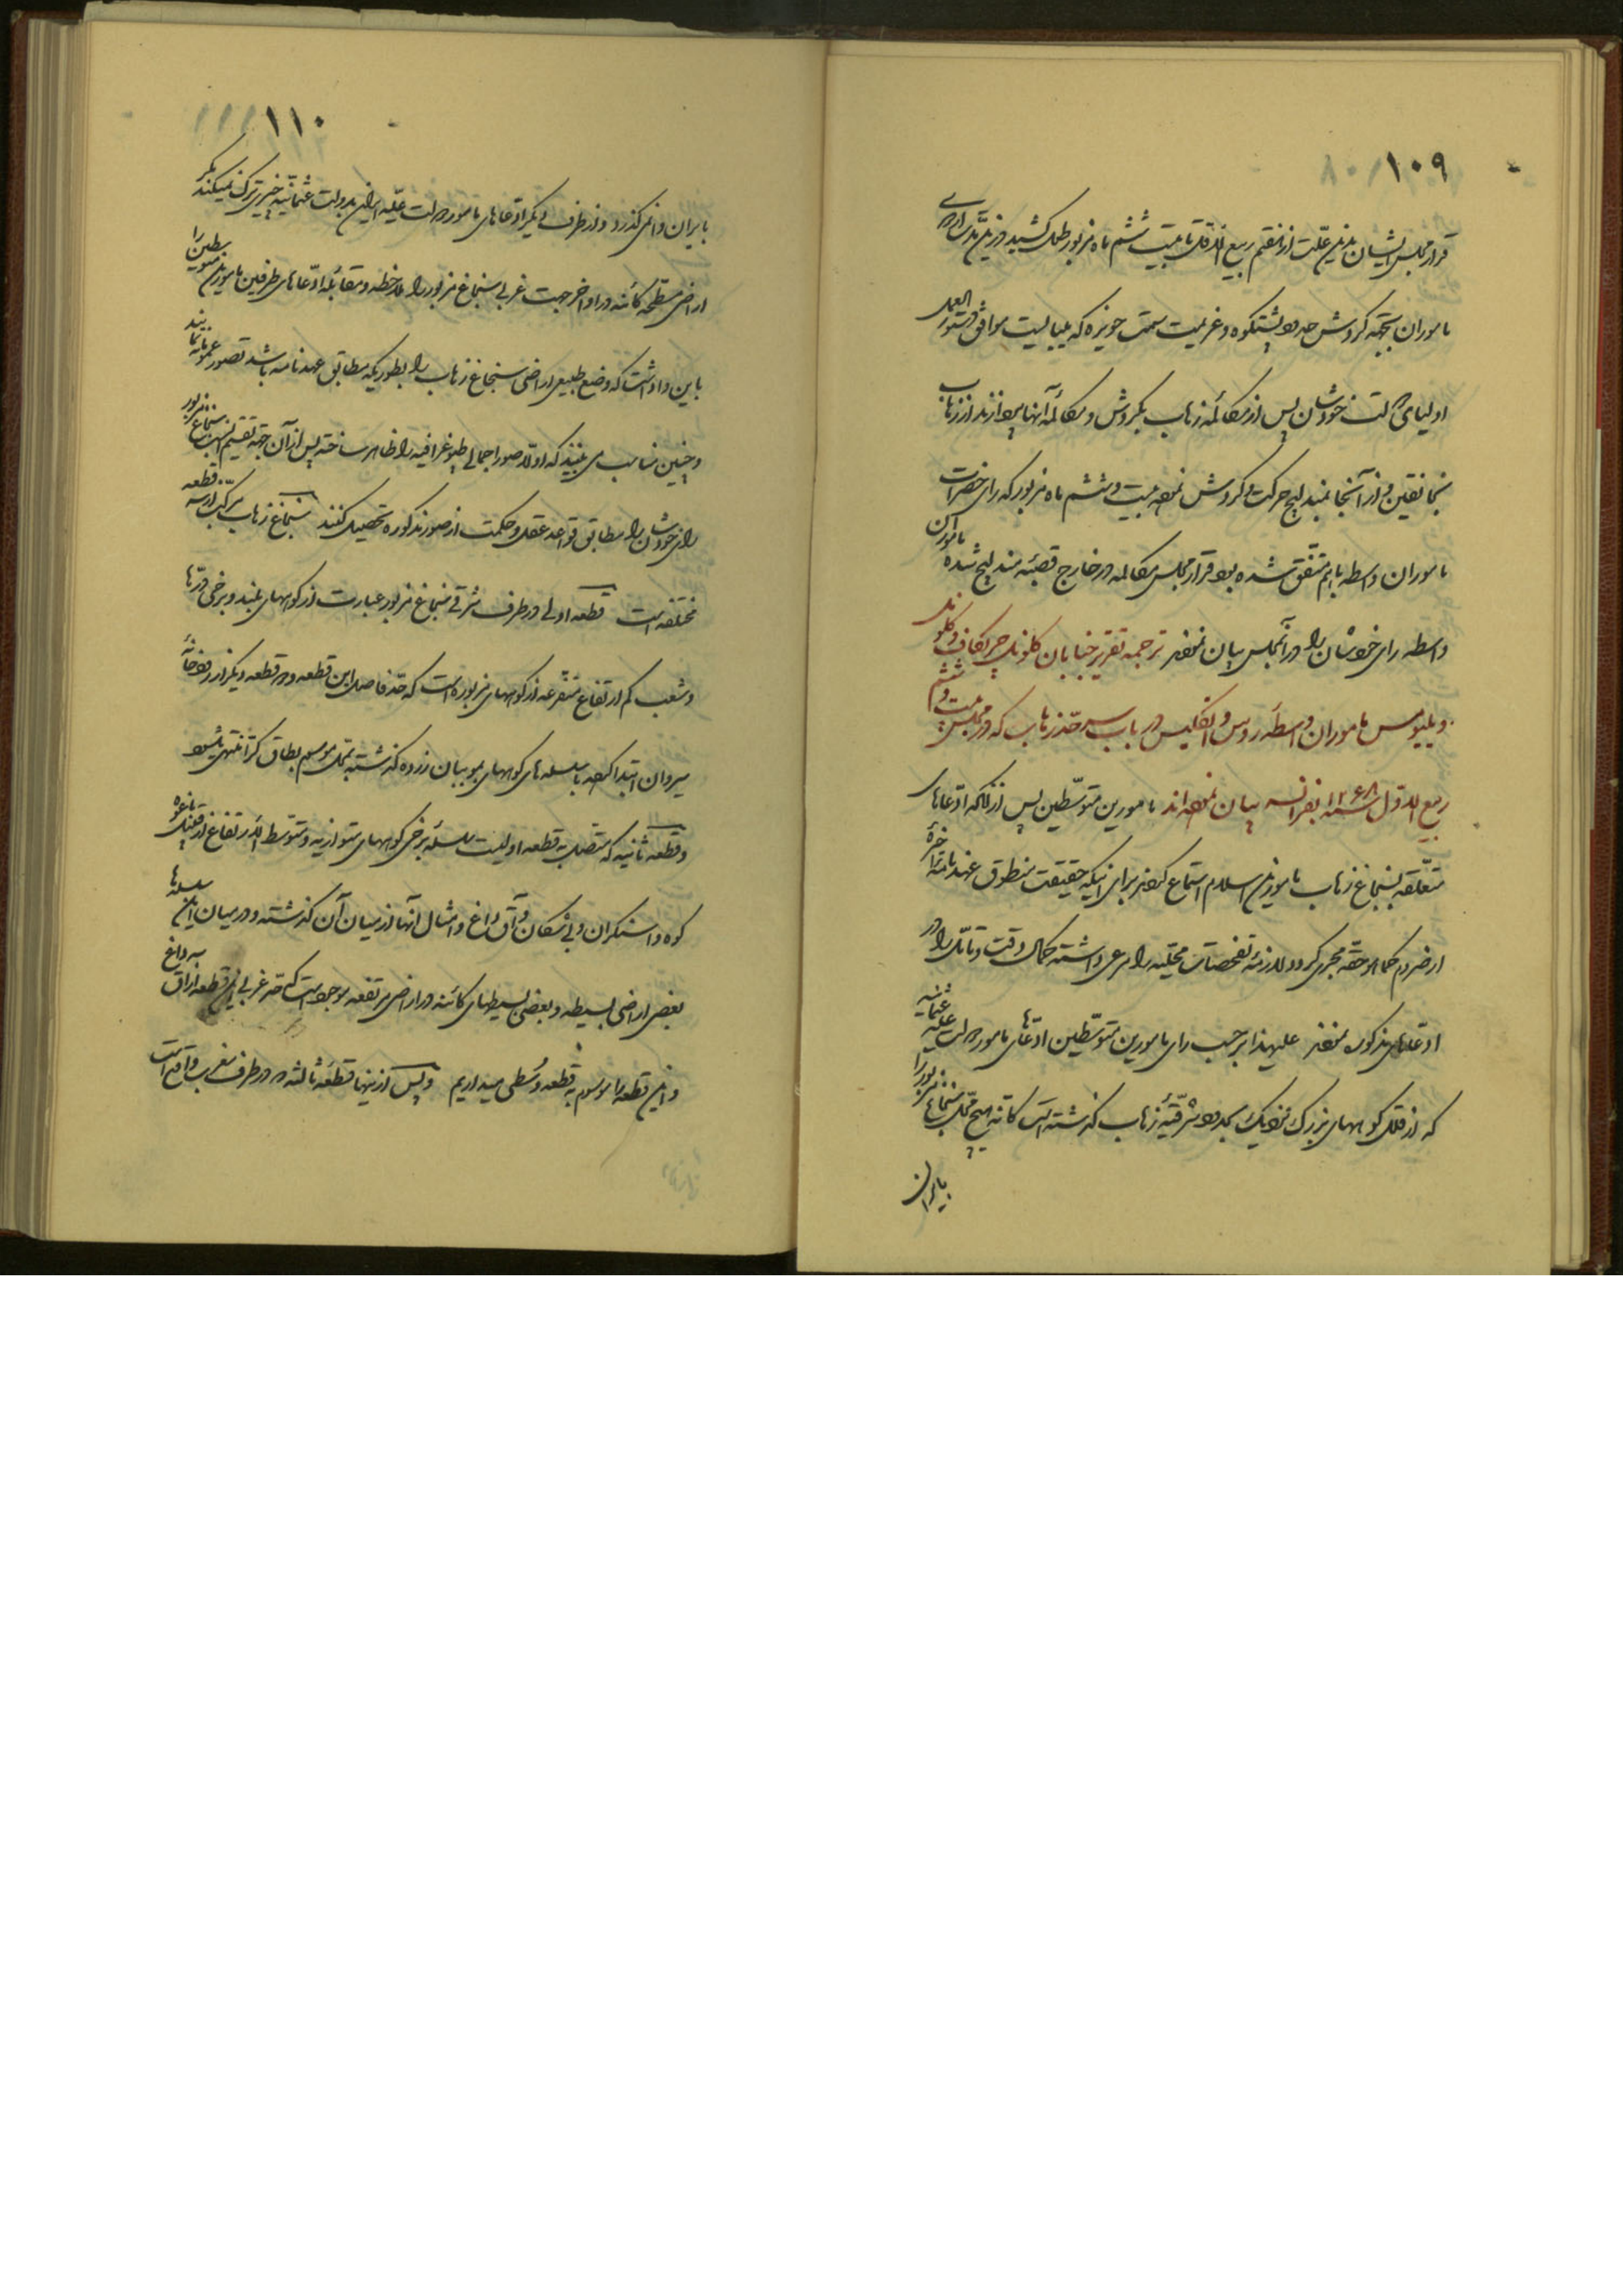 ۱۰۹
قرار مجلس ایشان بدین علت از هفتم ربیع الاول تا بیست ششم ماه مزبور طول کشید در این
ماموران بجهة گردش حدود پشتکوه و عزیمت سمت حویزه که میبایست موافق دستور العمل
اولیای دولت خودشان پس از مکالمه زهاب بگردش و مکالمه آنها پردازند از زهاب
بخانقین و از آنجا بمندلیج حرکت و گردش نموده بیست و ششم ماه مزبور که رای حضرات
ماموران واسطه باهم متفق شده بود قرار مجلس مکالمه در خارج قصبه مندلیج شده ماموران
واسطه رای خودشان را در آنمجلس بیان نمودند ترجمه تقریر جنابان کلونل چریکاف و کلونل
ویلیومس ماموران واسطه روس و انگلیس در باب سرحد زهاب که در مجلس بیست و ششم
ربیع الاول سنه ۱۲۶۸ بفرانسه بیان نموده‌اند مامورین متوسطین پس از آنکه ادعاهای
متعلقه بسنجاغ زهاب مامورین اسلام استماع کردند برای اینکه حقیقت منطوق عهدنامه
ارضروم کما هو حقه مجری گردد لازمه تفحصات محلیه را مرعی داشته کمال دقت و تامل را در
ادعاهای مذکوره نمودند علیهذا بر حسب رای مامورین متوسطین ادعای مامور دولت علیه عثمانیه
که از قلل کوههای بزرگ نزدیک بحدود شرقیه زهاب گذشته است کانه هیچ محل سنجاغ مزبور را
بایران
۱۱۰
بایران وانمی‌گذارد و از طرف دیگر ادعاهای مامور دولت علیه ایران بدولت عثمانیه چیزی ترک نمیکند مگر
اراضی مسطحه کائنه در اواخر جهت غربی سنجاغ مزبور را ملاحظه و مقابله ادعاهای طرفین مامورین متوسطین را
باین واداشت که وضع طبیعی اراضی سنجاغ زهاب را بطوریکه مطابق عهدنامه باشد تصور عموما نمایند
و چنین مناسب می بینند که اولا صور اجمالی طپوغرافیه را ظاهر ساخته پس از آن جهة تقسیم سنجاغ مزبور
رای خودشان را مطابق قواعد عقل و حکمت از صور مذکوره تحصیل کنند سنجاغ زهاب مرکب از سه قطعه
مختلفه است قطعه اولی در طرف شرقی سنجاغ مزبور عبارت از کوههای بلند و برخی دره‌ها
و شعب کم ارتفاع متفرعه از کوههای مزبوره است که حد فاصل این قطعه و دو قطعه دیگر از رودخانه
سیروان ابتدا کرده با سلسله های کوههای بمو بیان زرده گذشته بمحل موسوم بطاق کرا منتهی میشود
و قطعه ثانیه که متصل به قطعه اولیست سلسله برخی کوههای متوازیه و متوسط الارتفاع از قبیل باغوه
کوه و اسنکران و بشکان و آق داغ و امثال آنها از میان آن گذشته و در میان این سلسله‌ها
بعضی اراضی بسیطه و بعضی بسیطهای کائنه در اراضی مرتفعه موجود است که حد غربی این قطعه از آق داغ
و این قطعه را موسوم به قطعه وسطی میداریم و پس از اینها قطعه ثالثه در طرف مغرب واقع است